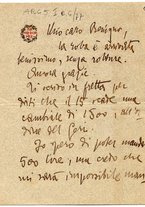 ARC 5.I.
Mio caro Benigno,
la roba è arrivata
benissimo, senza rotture.
Ancora grazie.
Ti scrivo in fretta per
dirti che il 15 scade una
cambiale di 1500,
del Gori.
Io spero di poter mandare
500 lire, ma credo che
mi sarà impossibile